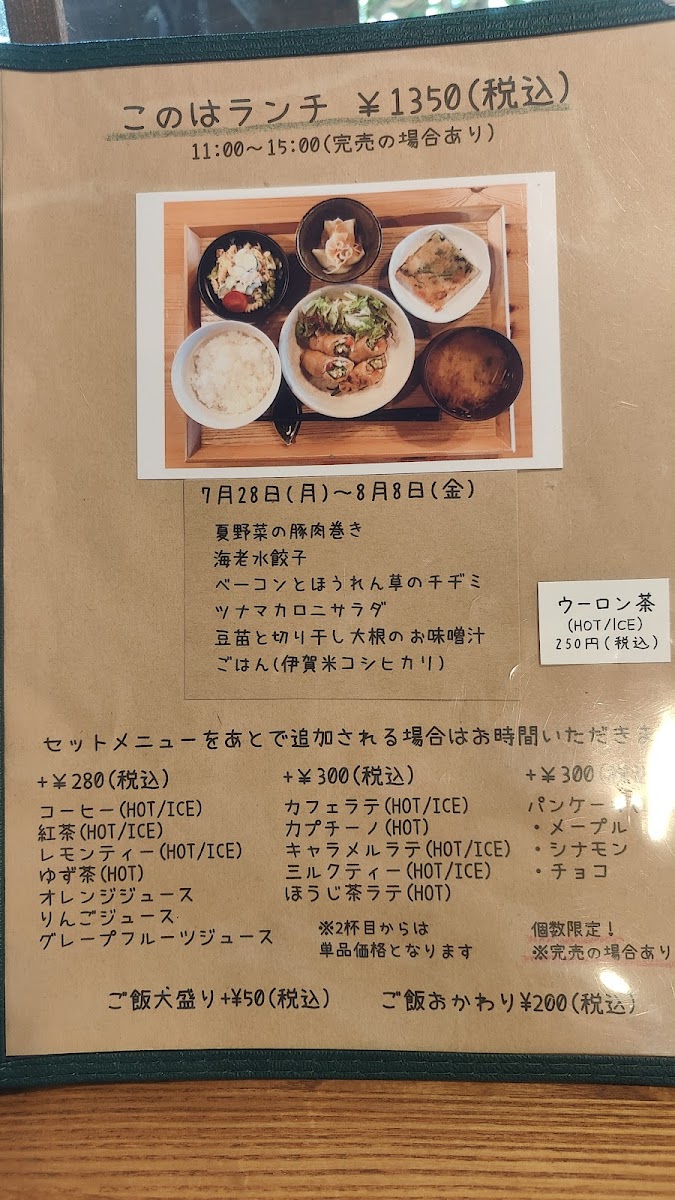 このはランチ ￥1350(税込)
11:00～15:00(完売の場合あり)
7月28日(月)～8月8日(金)
夏野菜の豚肉巻き
海老水餃子
ベーコンとほうれん草のチヂミ
ツナマカロニサラダ
豆苗と切り干し大根のお味噌汁
ごはん(伊賀米コシヒカリ)
ウーロン茶
(HOT/ICE)
250円(税込)
セットメニューをあとで追加される場合はお時間いただきま
+￥280(税込)
コーヒー(HOT/ICE)
紅茶(HOT/ICE)
レモンティー(HOT/ICE)
ゆず茶(HOT)
オレンジジュース
りんごジュース
グレープフルーツジュース
+￥300(税込)
カフェラテ(HOT/ICE)
カプチーノ(HOT)
キャラメルラテ(HOT/ICE)
ミルクティー(HOT/ICE)
ほうじ茶ラテ(HOT)
※2杯目からは
単品価格となります
+￥300
パンケー
・メープル
・シナモン
・チョコ
個数限定！
※完売の場合あり
ご飯大盛り+¥50(税込)
ご飯おかわり¥200(税込)